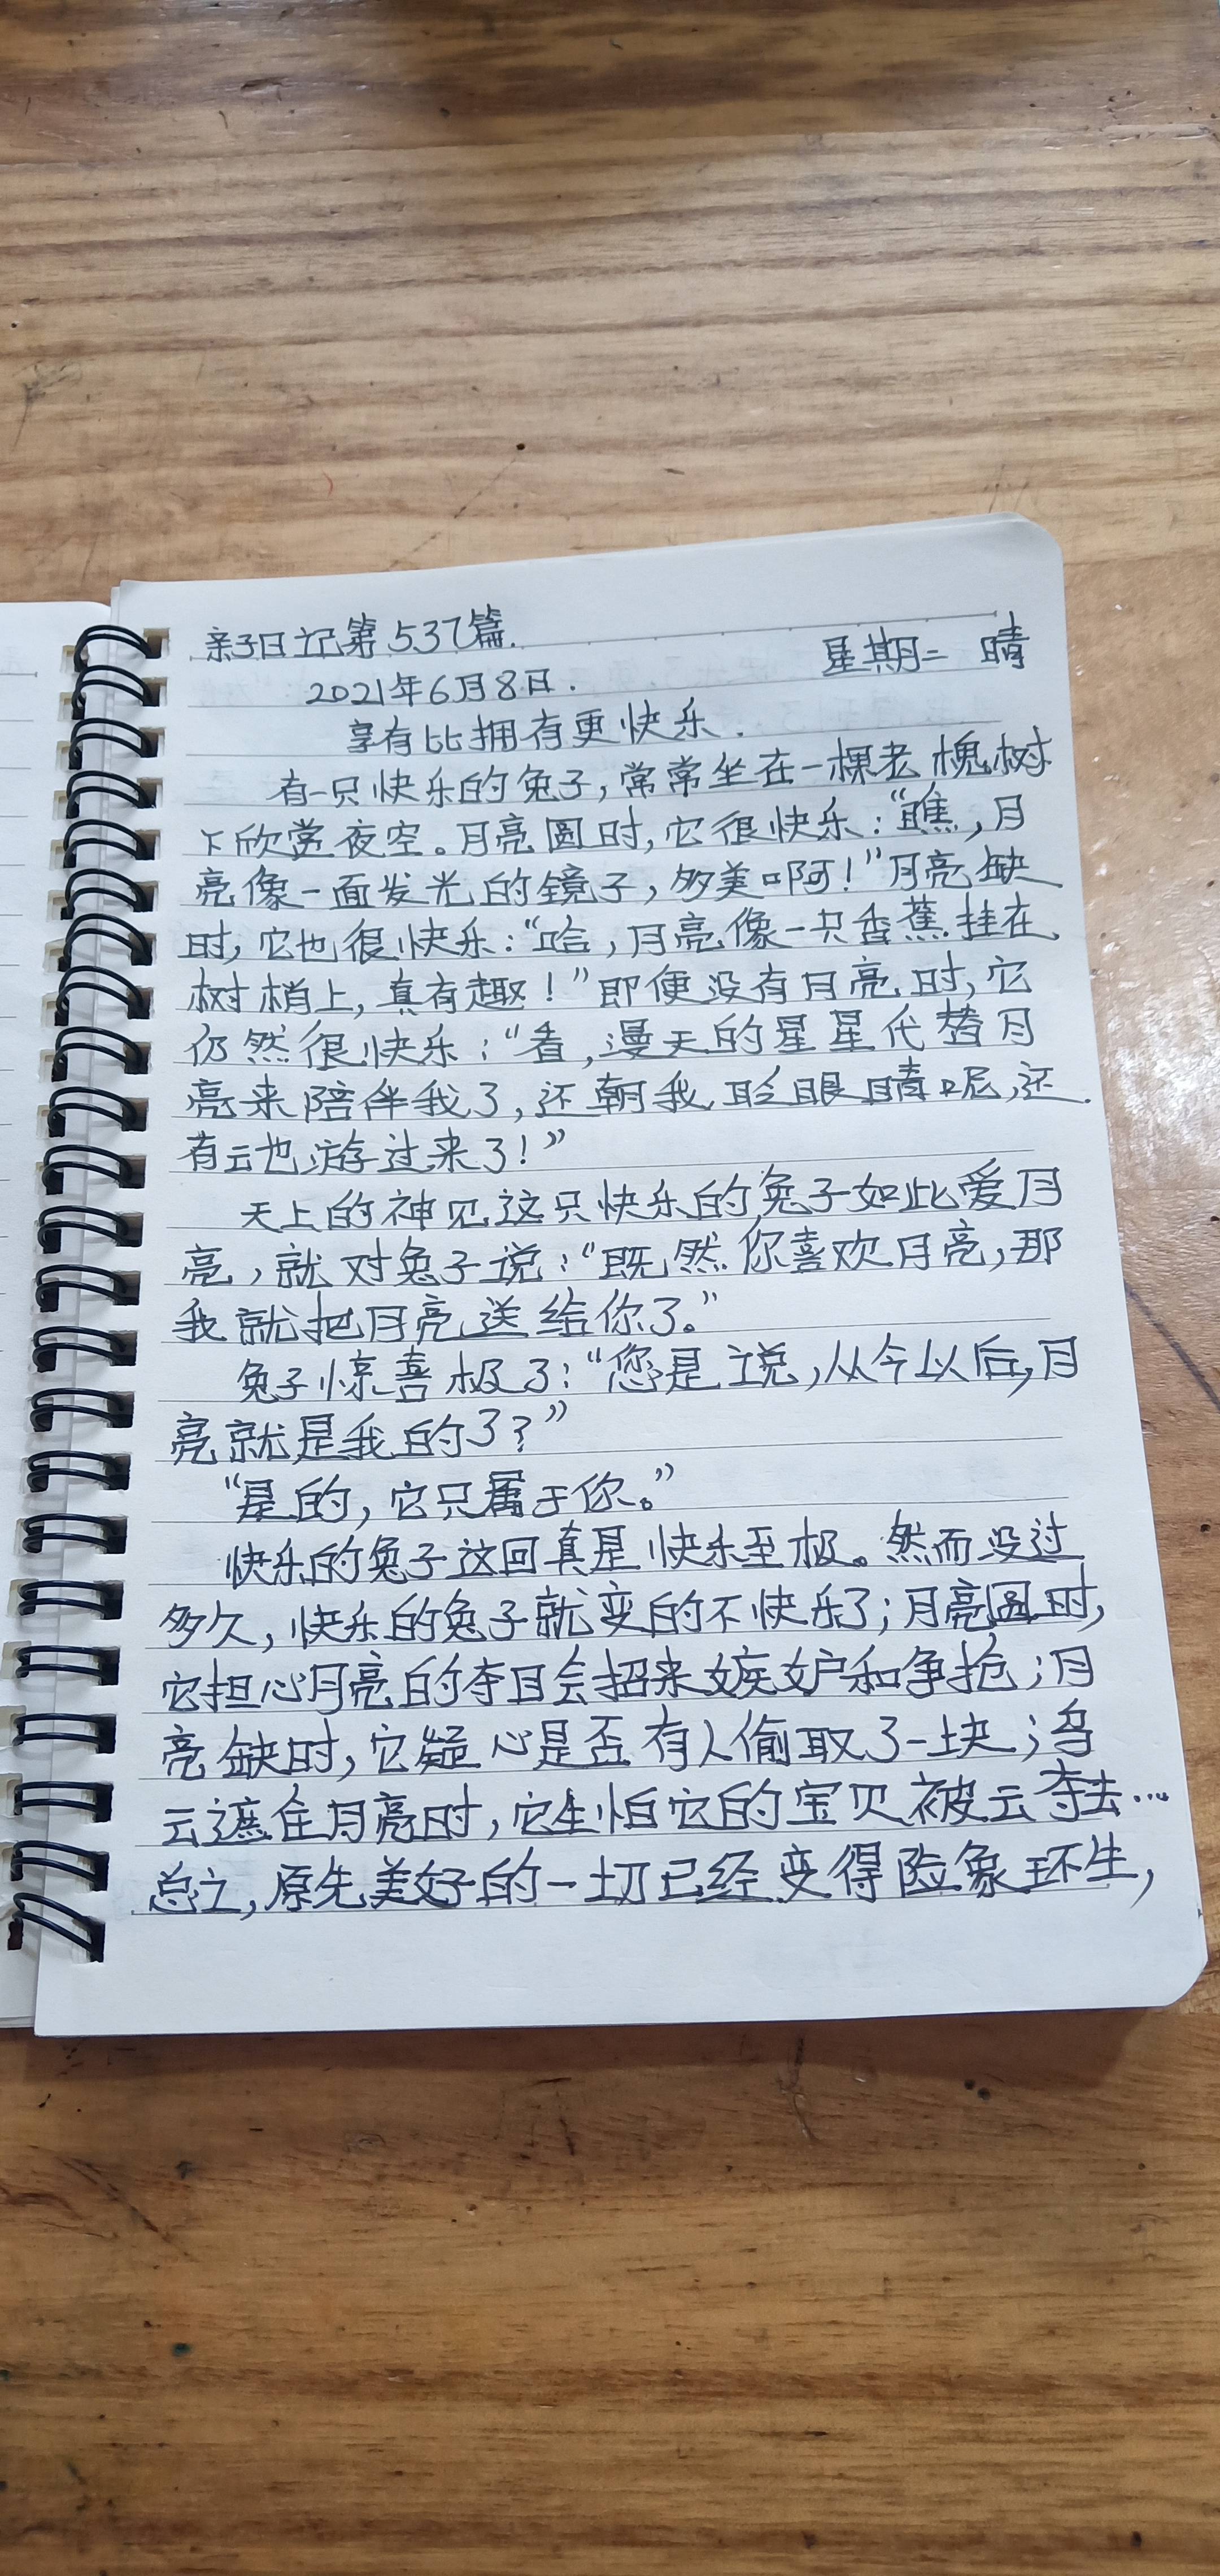 亲子日记第537篇.
星期二 晴
2021年6月8日.
享有比拥有更快乐.
有一只快乐的兔子,常常坐在一棵老槐树
下欣赏夜空。月亮圆时,它很快乐:“瞧,月
亮像一面发光的镜子,多美啊!”月亮缺
时,它也很快乐:“哈,月亮像一只香蕉挂在
树梢上,真有趣!”即便没有月亮时,它
仍然很快乐:“看,漫天的星星代替月
亮来陪伴我了,还朝我眨眼睛呢,还
有云也游过来了!”
天上的神见这只快乐的兔子如此爱月
亮,就对兔子说:“既然你喜欢月亮,那
我就把月亮送给你了。”
兔子惊喜极了:“您是说,从今以后,月
亮就是我的了?”
“是的,它只属于你。”
快乐的兔子这回真是快乐至极。然而没过
多久,快乐的兔子就变的不快乐了;月亮圆时,
它担心月亮的夺目会招来嫉妒和争抢;月
亮缺时,它疑心是否有人偷取了一块;乌
云遮住月亮时,它生怕它的宝贝被云夺去…
总之,原先美好的一切已经变得险象环生,